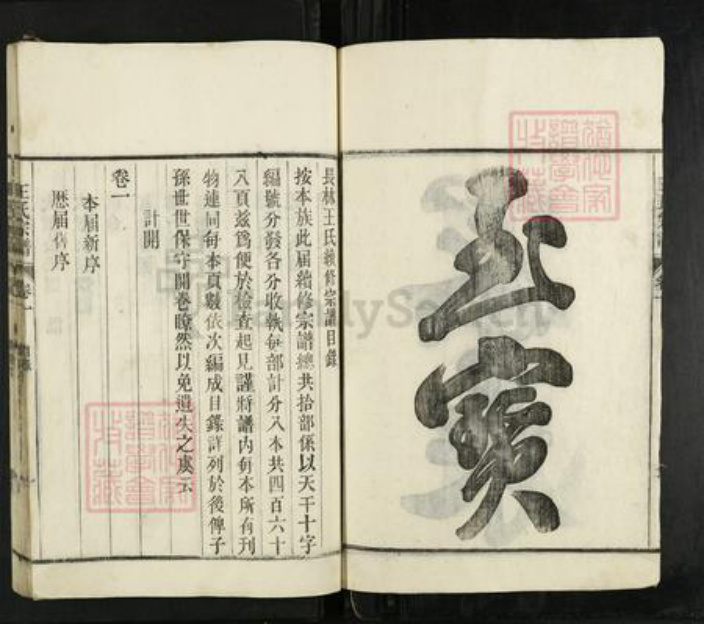 玉寶
長林王氏續修宗譜目錄
按本族此届續修宗譜總共拾部係以天干十字
編號分發各分收執每部計分八本共四百六十
八頁茲爲便於檢查起見謹將譜内每本所有刊
物連同每本頁數依次編成目錄詳列於後俾子
孫世世保守開卷瞭然以免遺失之虞云
計開
卷一
本届新序
歷届舊序
王氏宗譜
卷一
FamilySearch